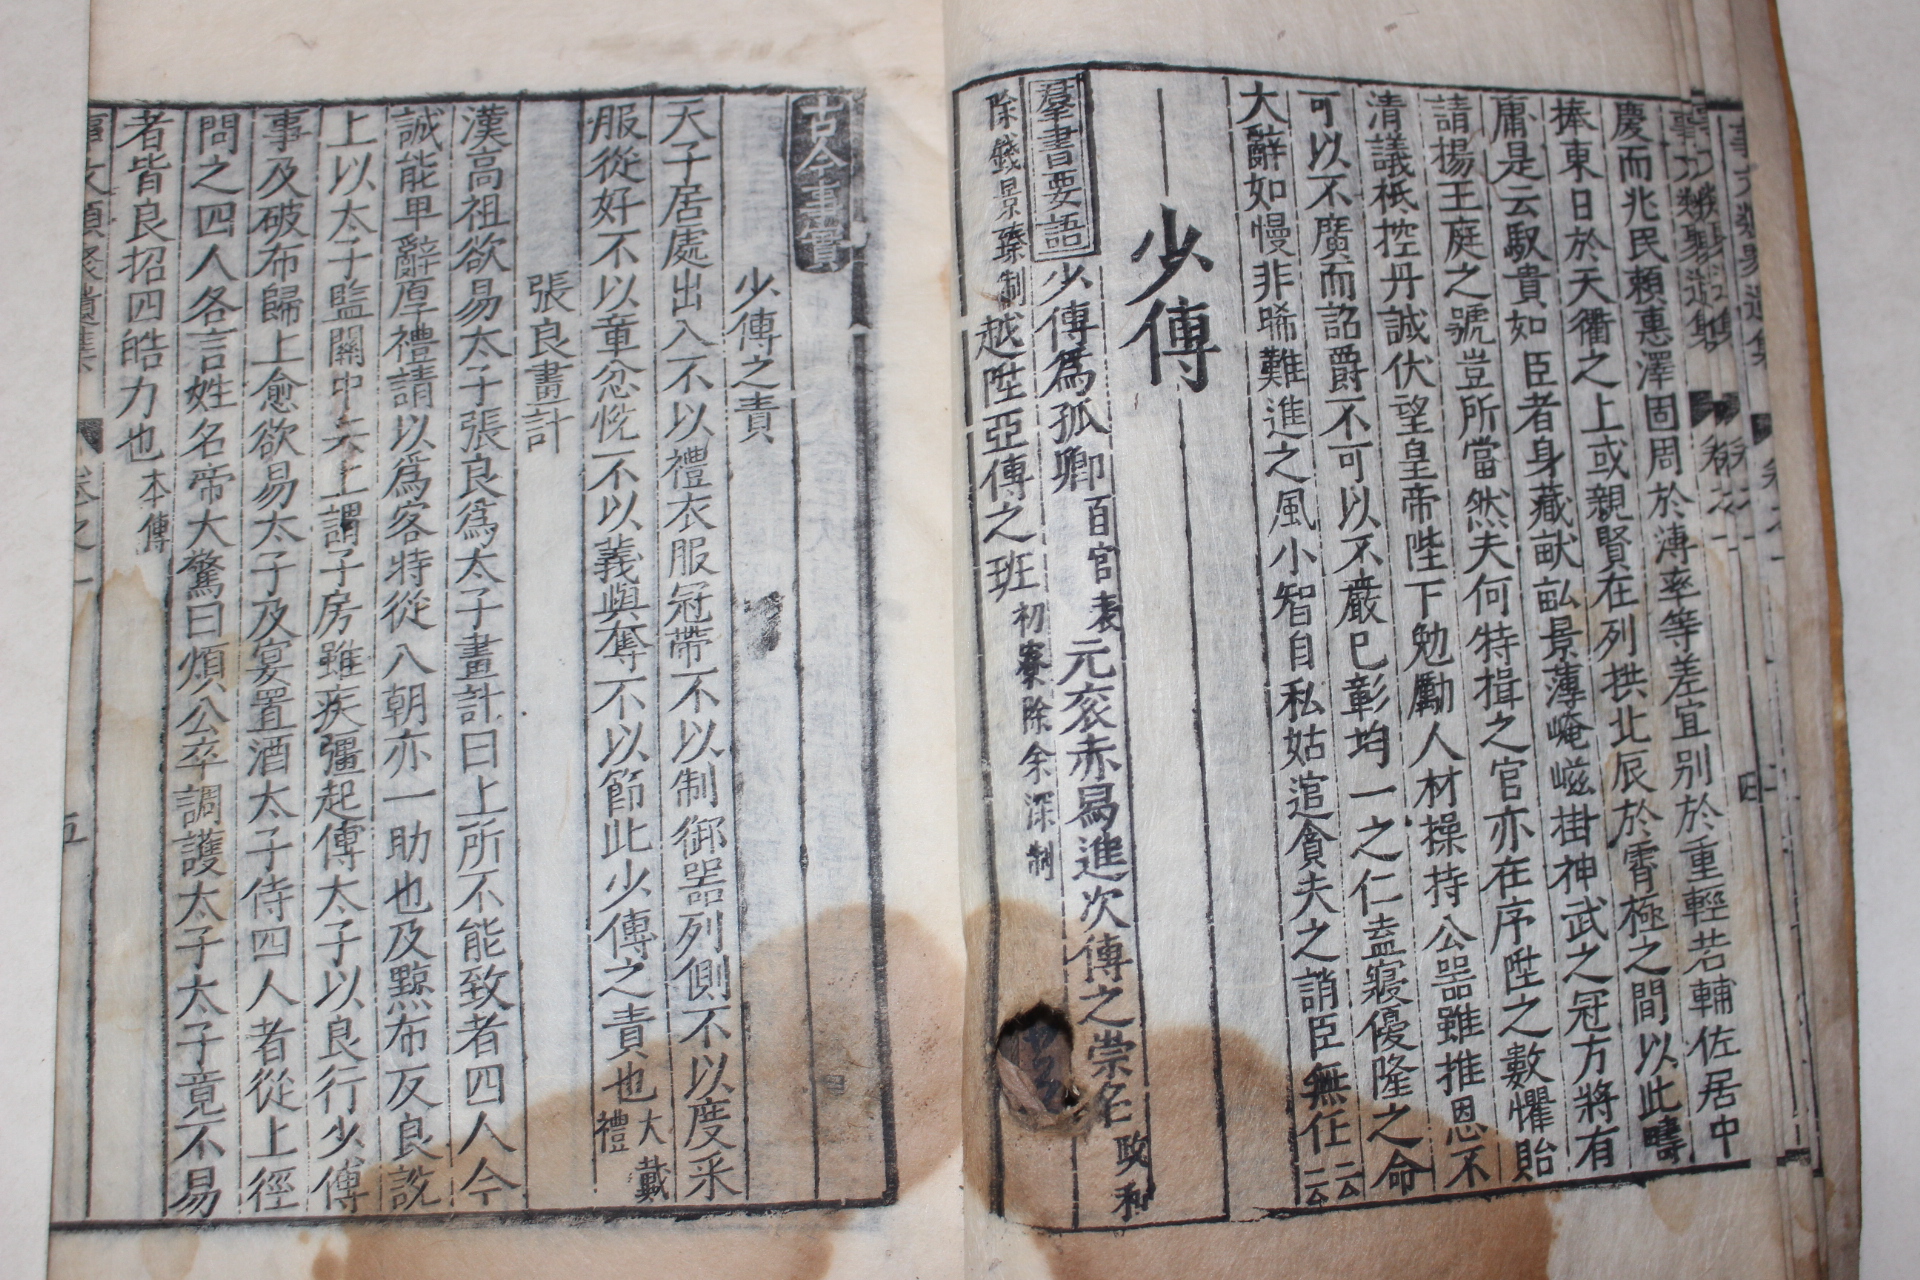 慶而兆民賴惠澤固周於溥率等差宜別於重輕若輔佐居中
捧東日於天衢之上或親賢在列拱北辰於霄極之間以此疇
庸是云馭貴如臣者身藏畎畝景薄崦嵫掛神武之冠方將有
請揚王庭之號豈所當然夫何特揖之官亦在序陞之數懼貽
清議柢控丹誠伏望皇帝陛下勉勵人材操持公器雖推恩不
可以不廣而詔爵不可以不嚴巳彰均一之仁盍寢優隆之命
大辭如慢非晞難進之風小智自私姑逭貪夫之誚臣無任云云
少傅
羣書要語 少傅爲孤卿 百官表 元衮赤舄進次傅之崇名 政和
除錢景臻制 越陞亞傅之班 初寮除余深制
古今事實
少傅之責
天子居處出入不以禮衣服冠帶不以制御器列側不以度采
服從好不以章忿恱不以義與奪不以節此少傅之責也 大戴禮
張良畫計
漢高祖欲易太子張良爲太子畫計曰上所不能致者四人今
誠能卑辭厚禮請以爲客特從入朝亦一助也及黥布反良說
上以太子監關中兵上謂子房雖疾彊起傅太子以良行少傅
事及破布歸上愈欲易太子及宴置酒太子侍四人者從上徑
問之四人各言姓名帝大驚曰煩公卒調護太子太子竟不易
者皆良招四皓力也 本傳
事文類聚遺集 卷之一 五